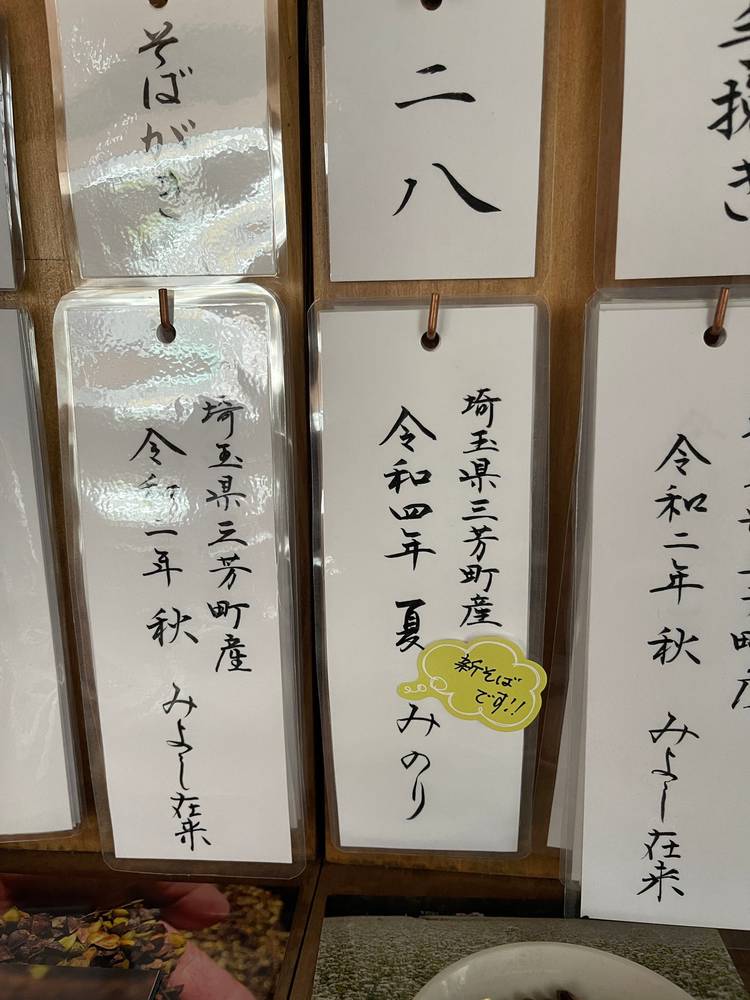 二八
そばがき
令和二年 秋 みよし在来
埼玉県三芳町産
令和四年 夏 みのり
新そば
です!!
埼玉県三芳町産
令和二年 秋 みよし在来